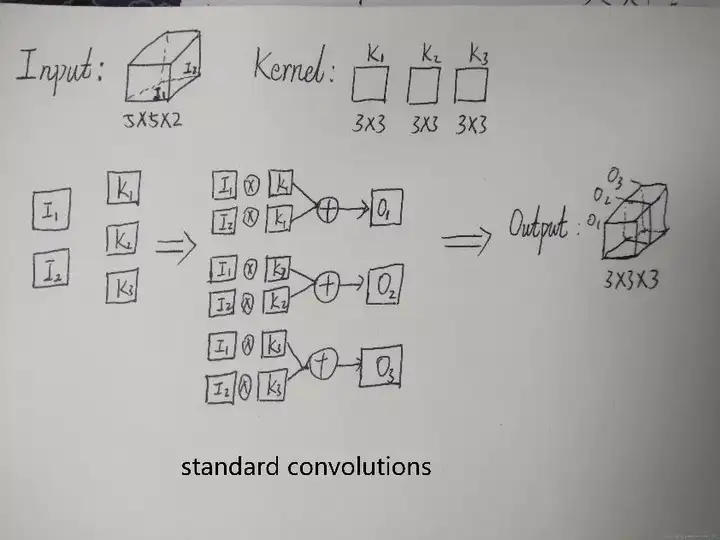 Input: I₂ I₁ 5X5X2
Kernel: K₁ K₂ K₃
3X3 3X3 3X3
I₁ K₁
I₂ K₂
K₃
I₁ ⊗ K₁
I₂ ⊗ K₁
⊕ → O₁
I₁ ⊗ K₂
I₂ ⊗ K₂
⊕ → O₂
I₁ ⊗ K₃
I₂ ⊗ K₃
⊕ → O₃
Output: O₁ O₂ O₃
3X3X3
standard convolutions